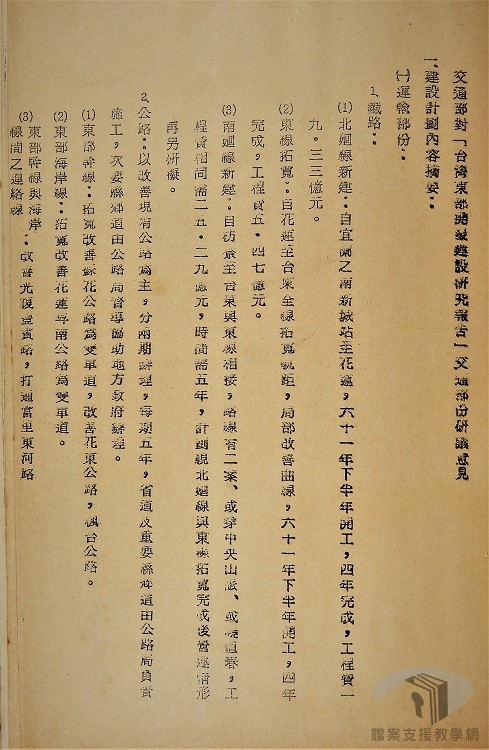 交通部對「台灣東部開發建設研究報告」交通部份研議意見
一、建設計劃內容摘要：
㈠運輸部份：
1.鐵路：
⑴北迴線新建：自宜蘭之南新城站至花蓮，六十一年下半年開工，四年完成，工程費一
九．三三億元。
⑵東線拓寬：自花蓮至台東全線拓寬軌距，局部改善曲線，六十一年下半年開工，四年
完成，工程費五．四七億元。
⑶南迴線新建：自枋寮至台東與東線相接，路線有二案、或穿中央山脈、或繞恆春，工
程費相同需二五．二九億元，時間需五年，計劃視北迴線與東線拓寬完成後營運情形
再另研擬。
2.公路：以改善現有公路為主，分兩期辦理，每期五年，省道及重要縣鄉道由公路局負責
施工，次要縣鄉道由公路局督導協助地方政府辦理。
⑴東部幹線：拓寬改善蘇花公路為雙車道，改善花東公路，楓台公路。
⑵東部海岸線：拓寬改善花蓮專南公路為雙車道。
⑶東部幹線與海岸
線間之連絡線：改善光復豐賓路，打通富里東河路
檔案支援教學網